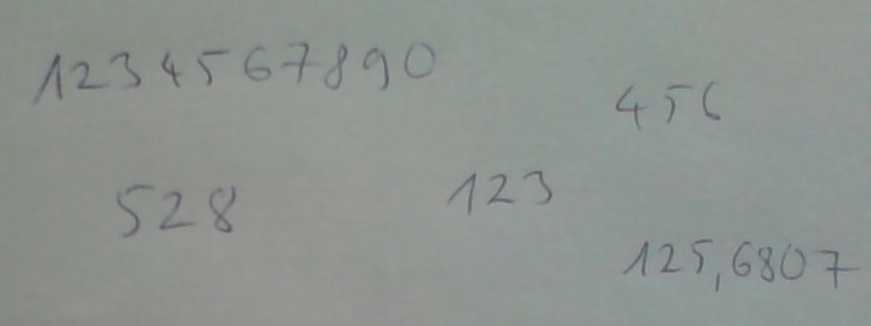 1234567890
456
528
123
125,6807